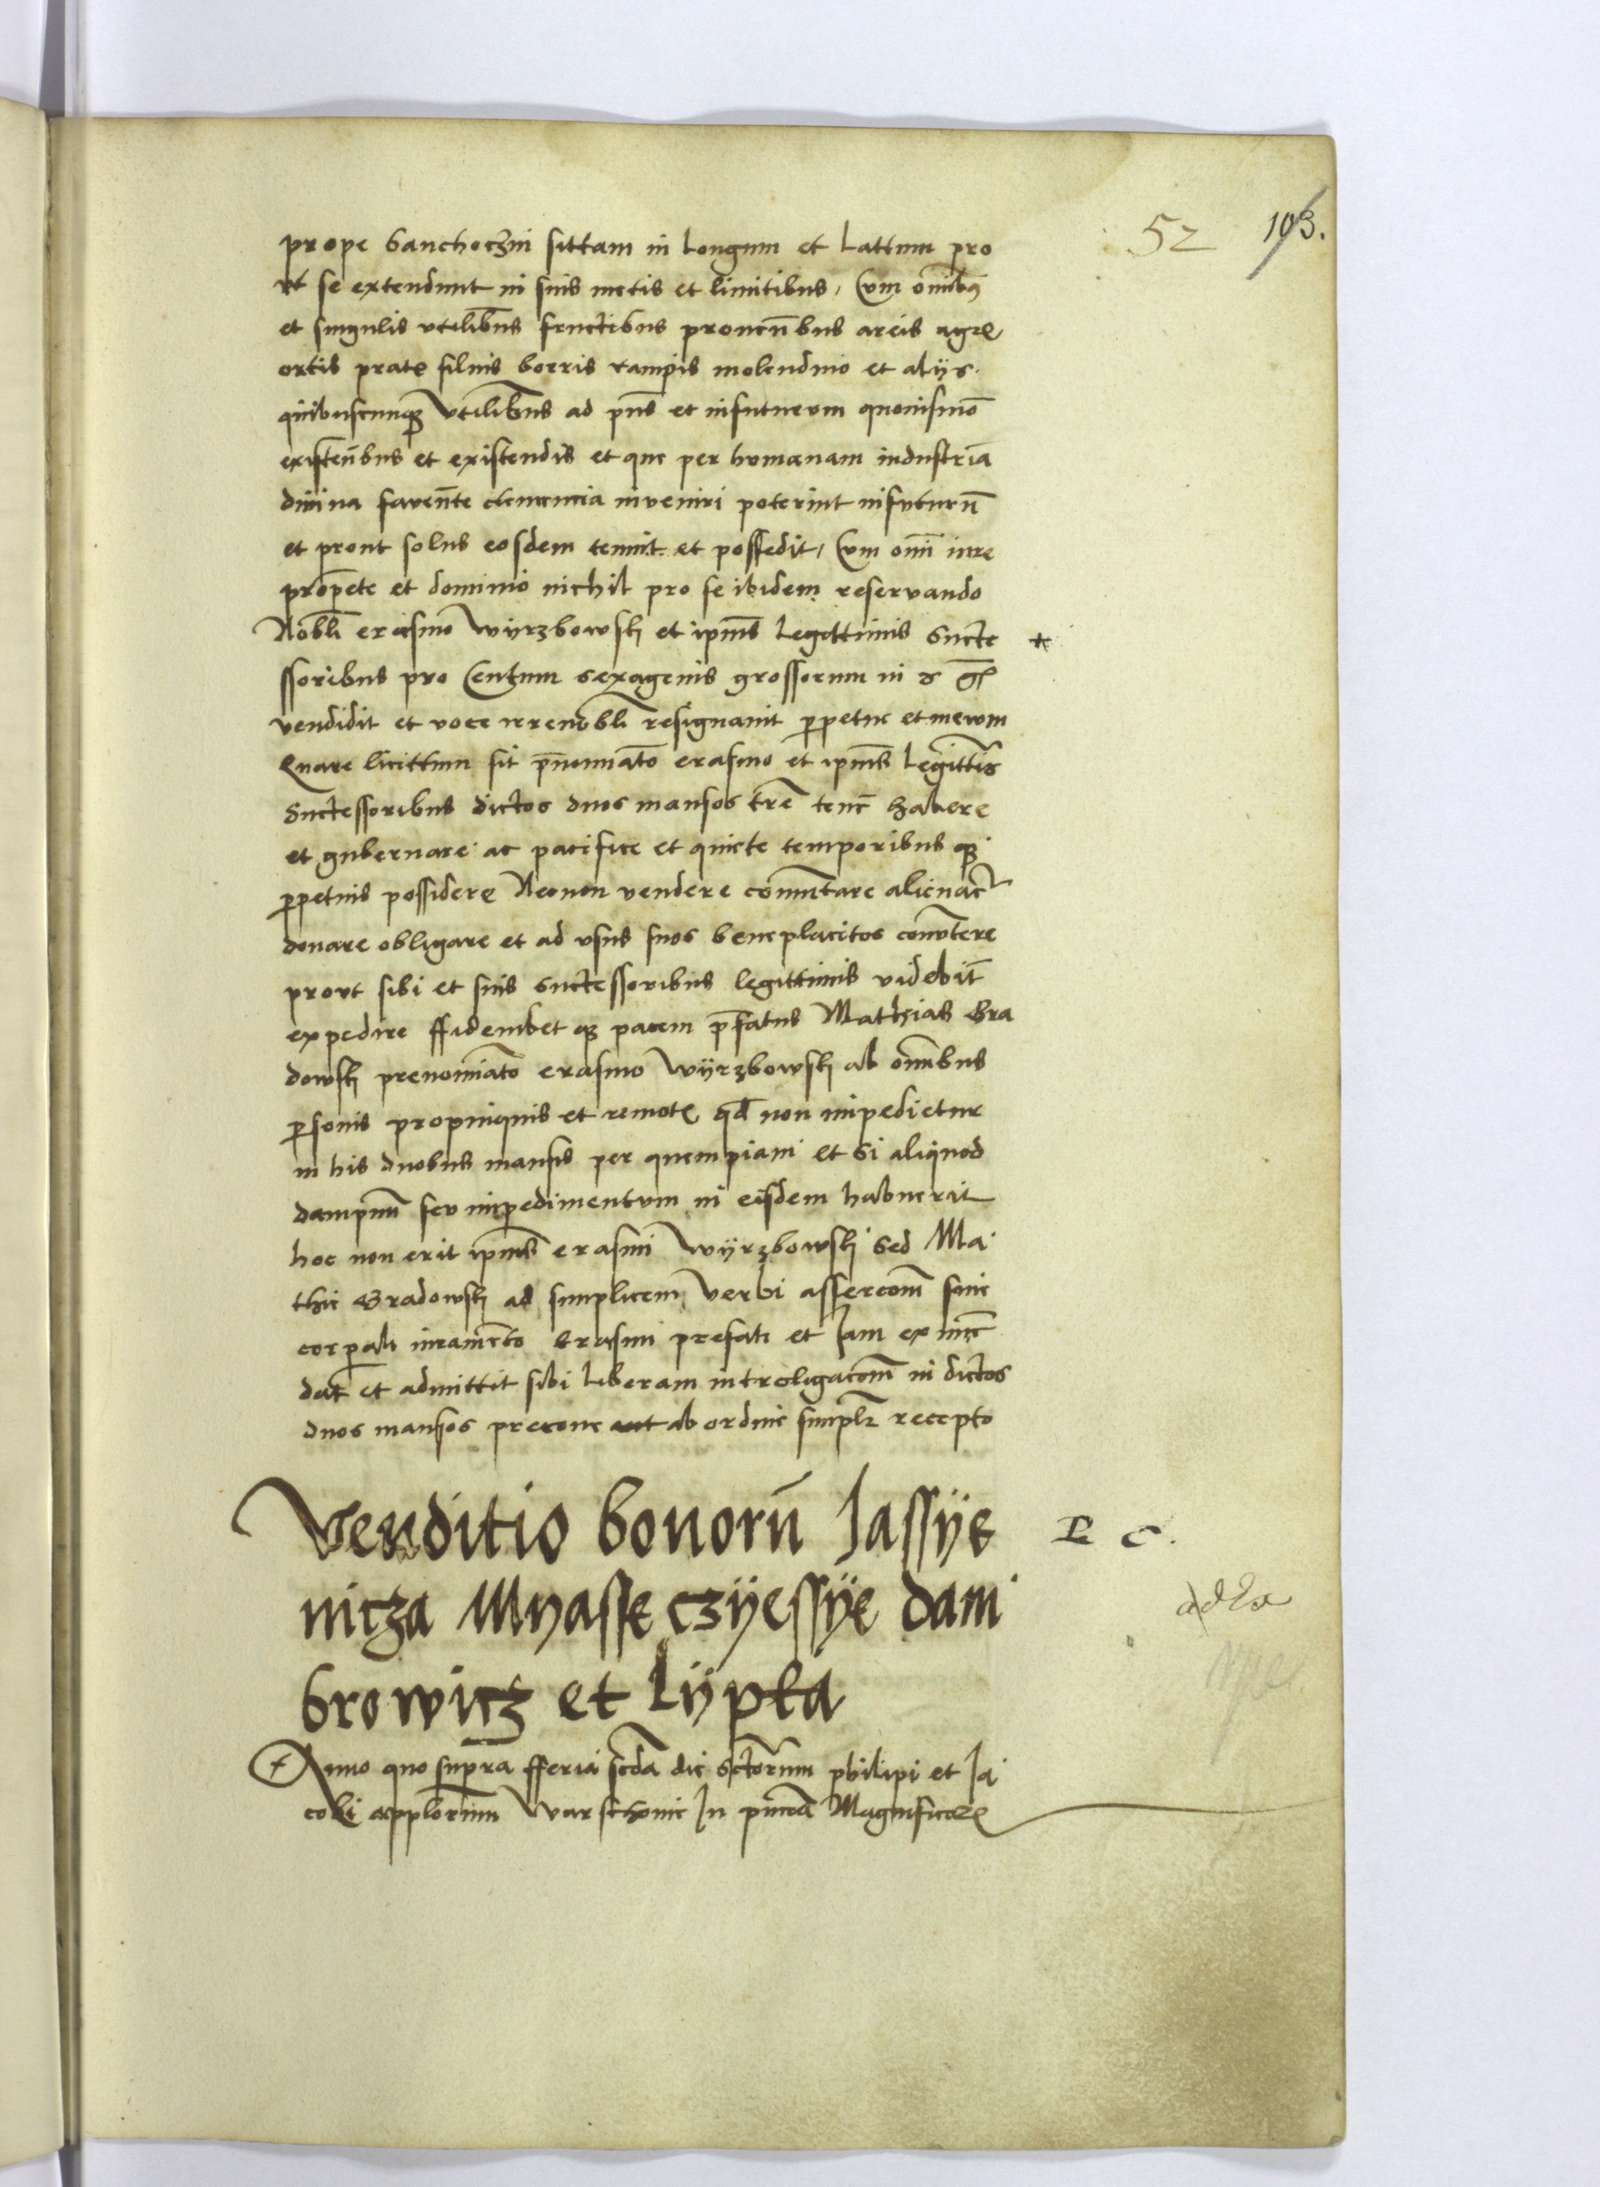 52 103.
prope Ganchoczin sittam in longum et Lattum pro
ut se extendunt in suis metis et limitibus, Cum om̄ibus
et singulis utilib̄us fructibus proventibus areis agr̄
ortis prat̄ silvis borris rampis molendino et alÿs
quibuscunq̄ utilib̄us ad p̄ns et infuturum quovismō
existen̄bus et existendis et que per humanam industriā
divina faven̄te clemencia inveniri poterint infuturū
et prout solus eosdem tenuit et possedit, Cum om̄i iure
prop̄ete et dominio nichil pro se ibidem reservando
Nobli erasmo Wÿrzbowsky et ip̄ius Legittimis Succe
ssoribus pro Centum sexagenis grossorum in
vendidit et voce irrevobli resignavit p̄petue et in evum
Quare licittum sit p̄nomīato erasmo et ip̄ius Legittis
Successoribus dictos duos mansos t̄re ten̄e habere
et gubernare ac pacifice et quiete temporibus q̄
p̄petuis possidere Necnon vendere com̄utare alienar̄
donare obligare et ad usus suos beneplacitos convtere
prout sibi et suis Successoribus legittimis videbit̄
expedire ffidemꝫ et q̄ pacem p̄fatus Mathias Gra
dowsky prenomīato erasmo Wÿrzbowsky ab om̄ibus
p̄sonis propinquis et remot̄ qd̄ non impedietur
in his duobus mansis per quempiam et Si aliquod
dampnū seu impedimentum in eisdem habuerit
hoc non erit ip̄ius erasmi Wÿrzbowsky Sed Ma
thie Gradowsky ad simplicem verbi assercōm sine
corp̄ali iuramēto Erasmi prefati et Jam ex nūc
dat et admittit sibi Liberam introligacōm in dictos
duos mansos precone aut ab ordine simplr̄ recepto
Venditio bonorū Jassÿe
nicza Mnasse czÿessÿe dam
browicz et Lÿpka
P C.
Anno quo supra fferia scd̄a die Sctorum philipi et Ja
cobi app̄lorum Warschovie In p̄ncia Magnificor̄